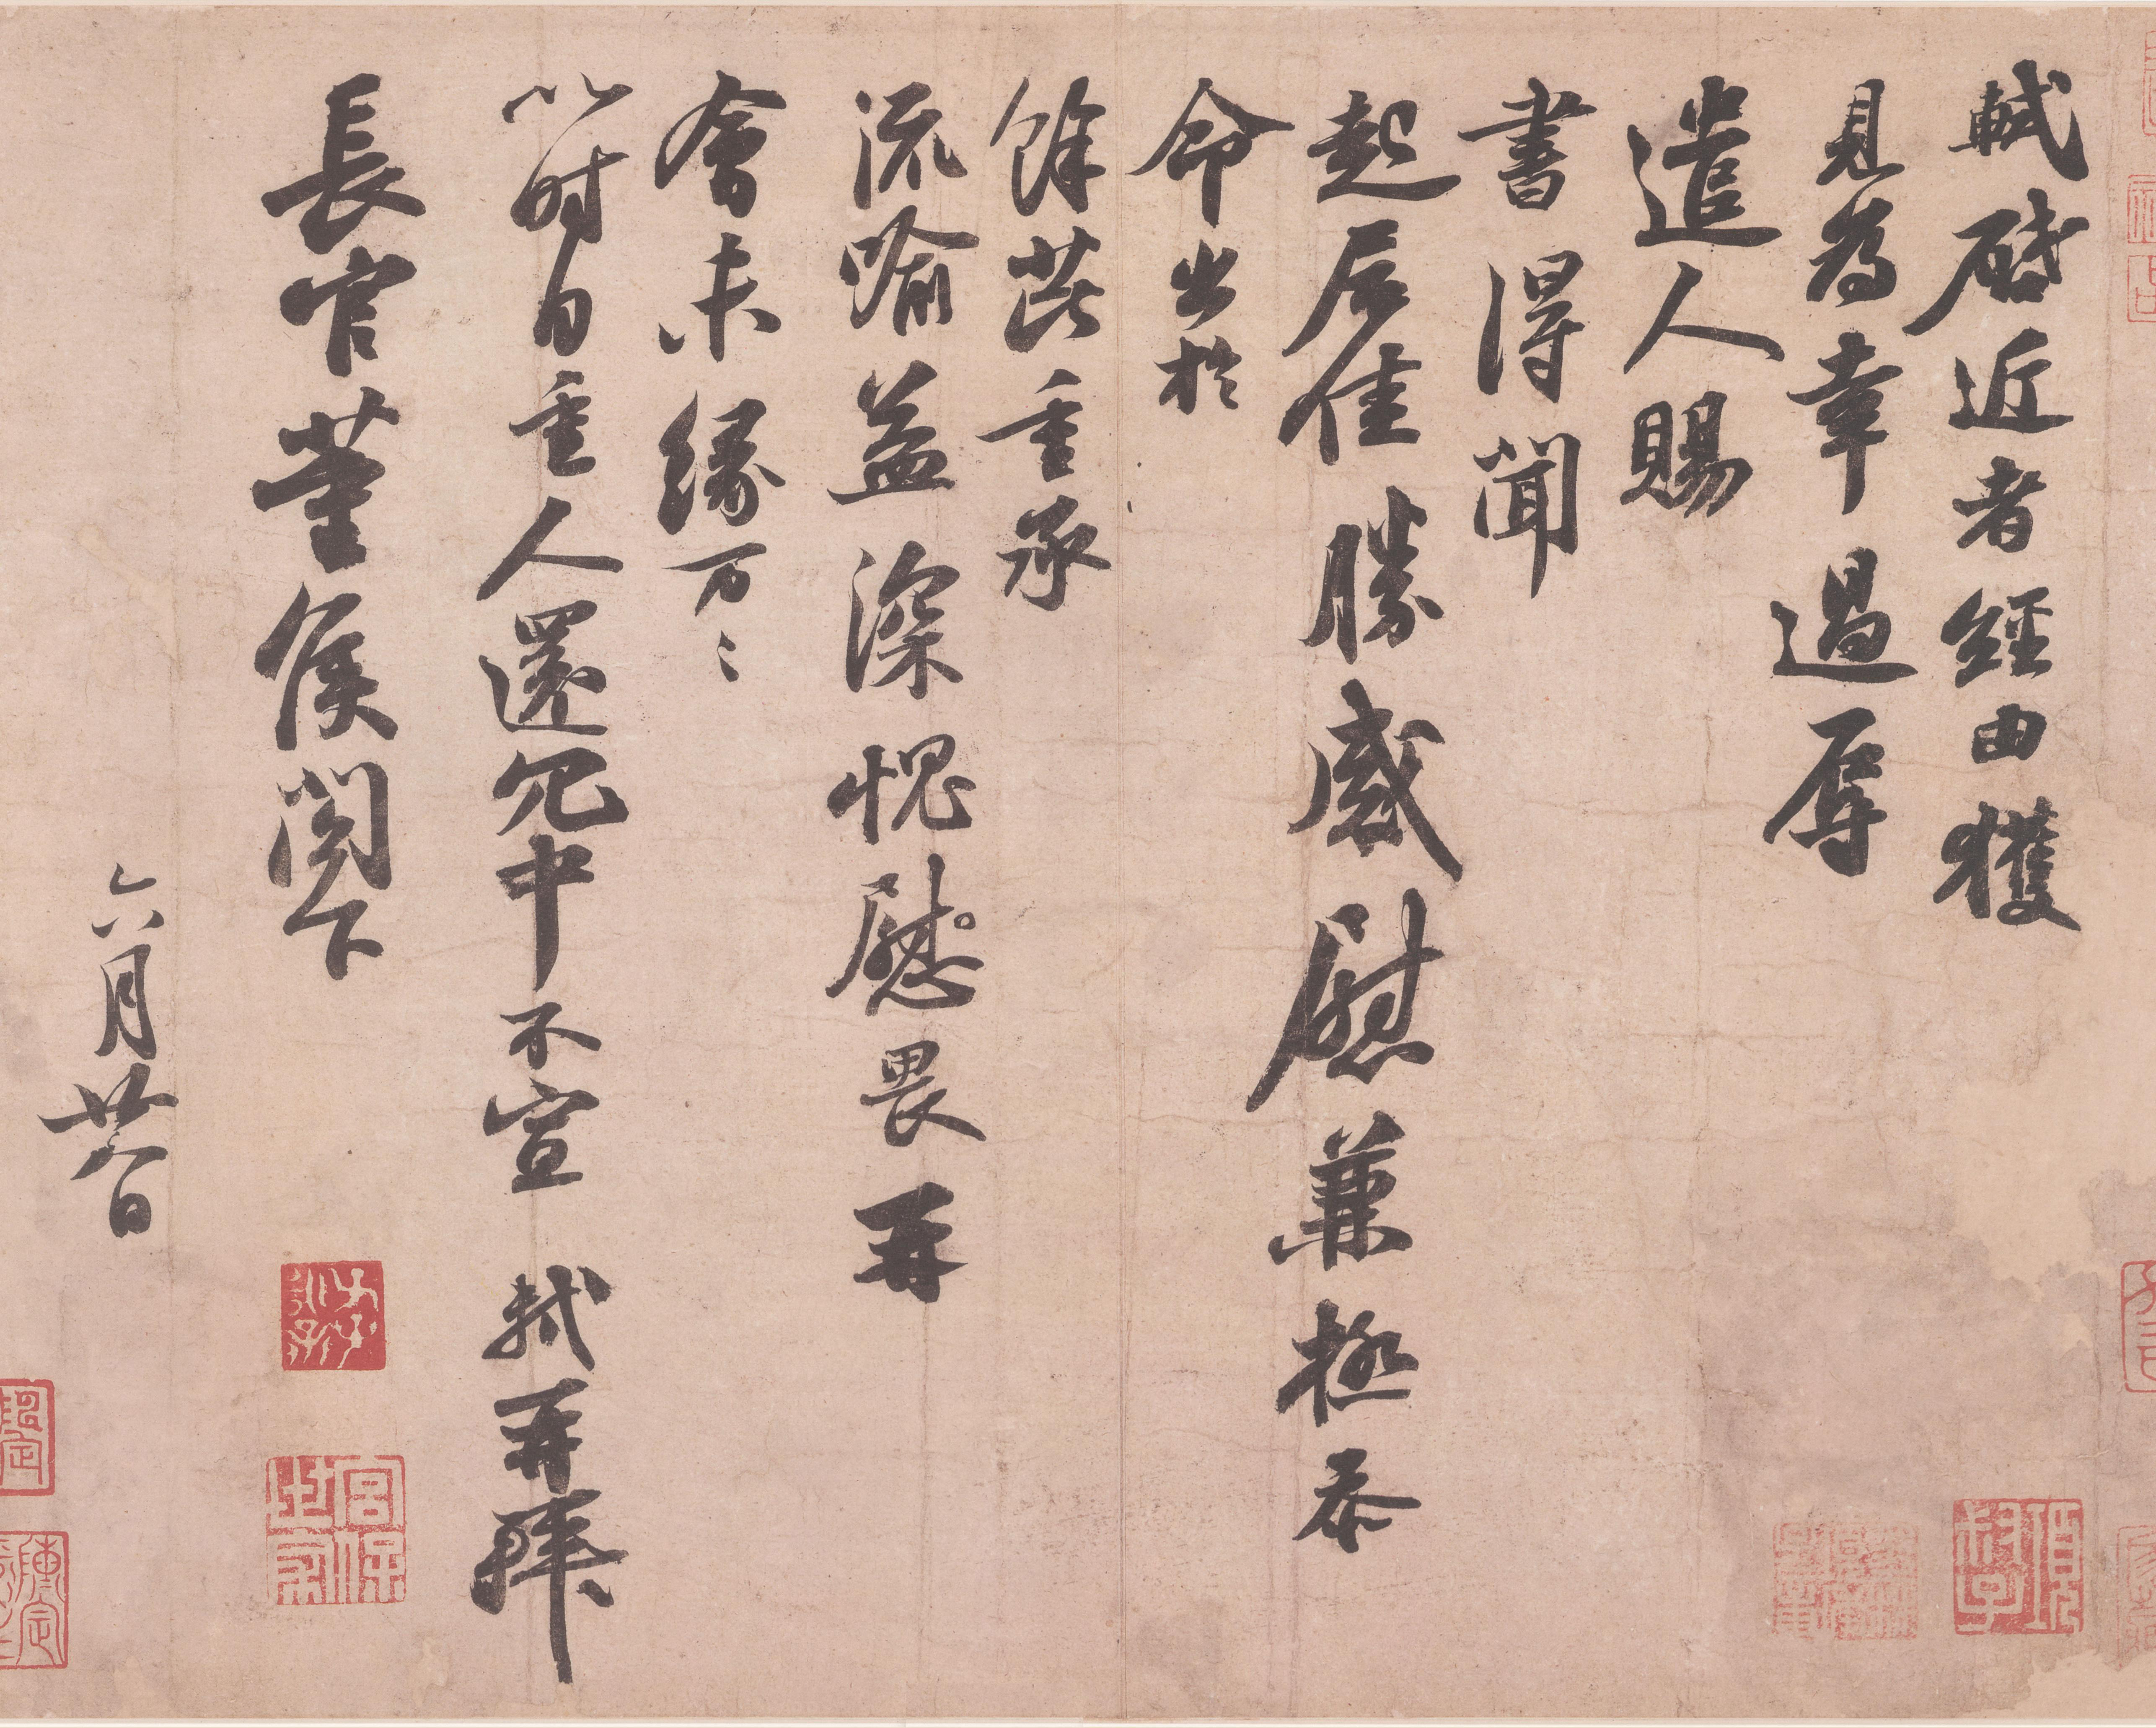 軾啟近者經由獲
見為幸過辱
遣人賜
書得聞
起居佳勝感慰兼極忝
命出於
餘芘重承
流喻益深愧慰畏再
會未緣万〻
以时自重人還冗中不宣 軾再拜
長官董侯閣下
六月廿八日
宮保世家